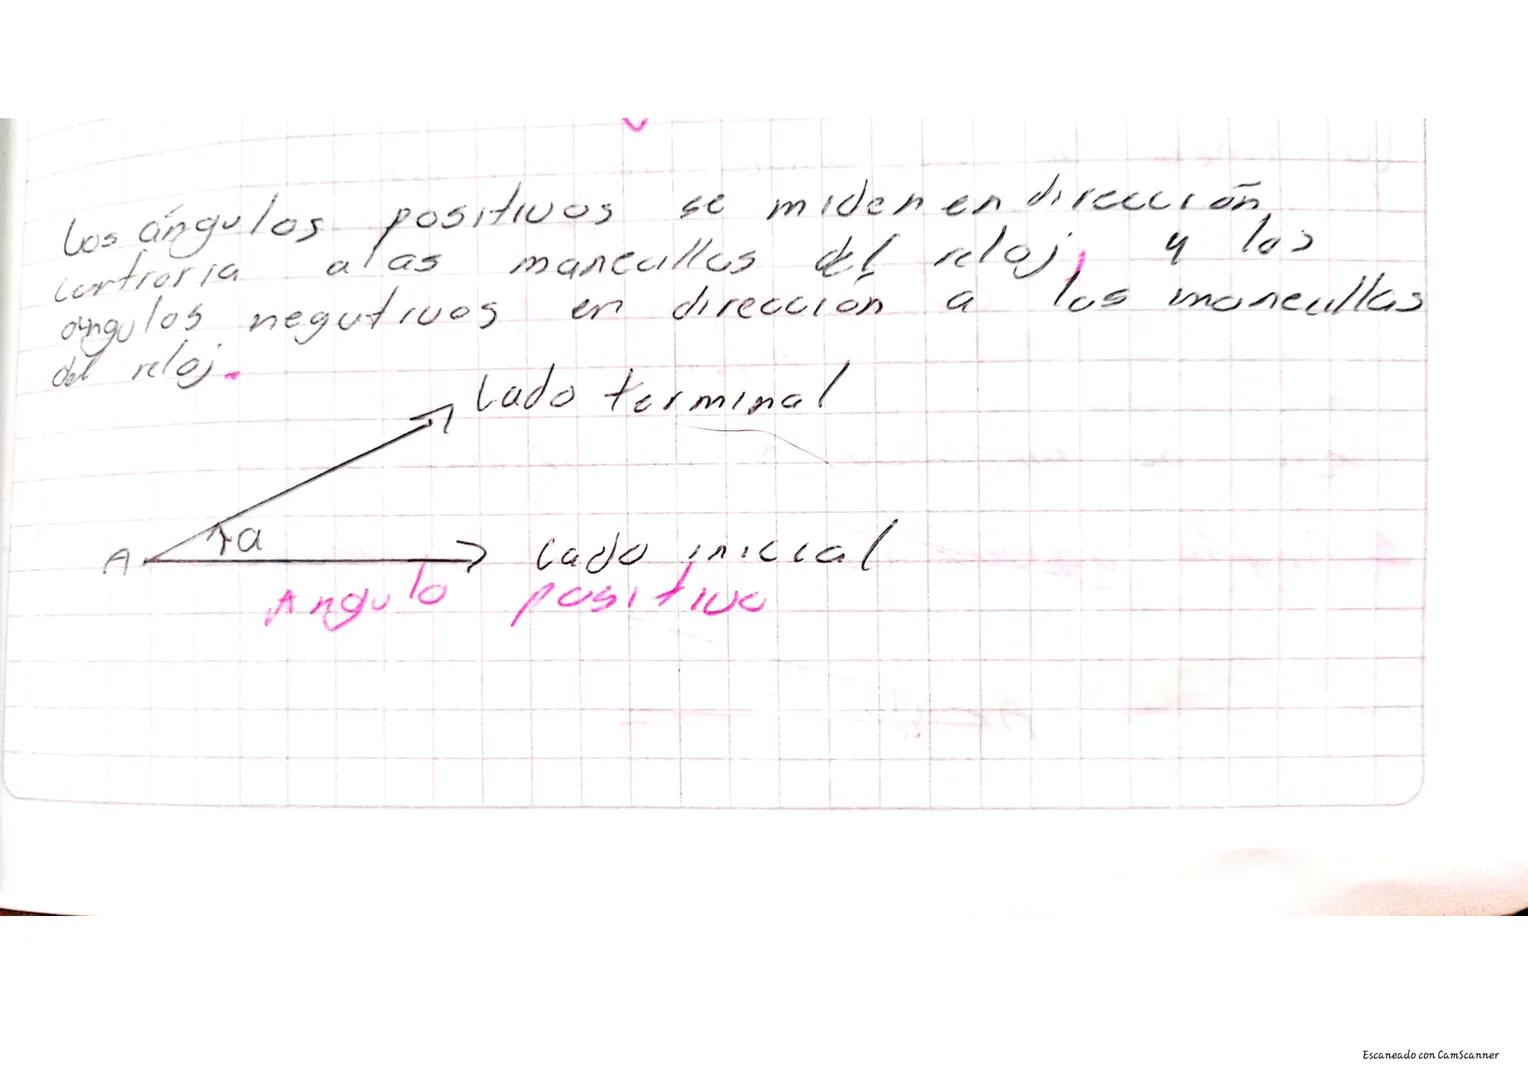 Los ángulos positivos se miden en dirección
contraria a las manecillas del reloj, y los
ángulos negativos en dirección a las manecillas
del reloj.
Lado terminal
a
A
Lado inicial
Angulo positivo
Escaneado con CamScanner